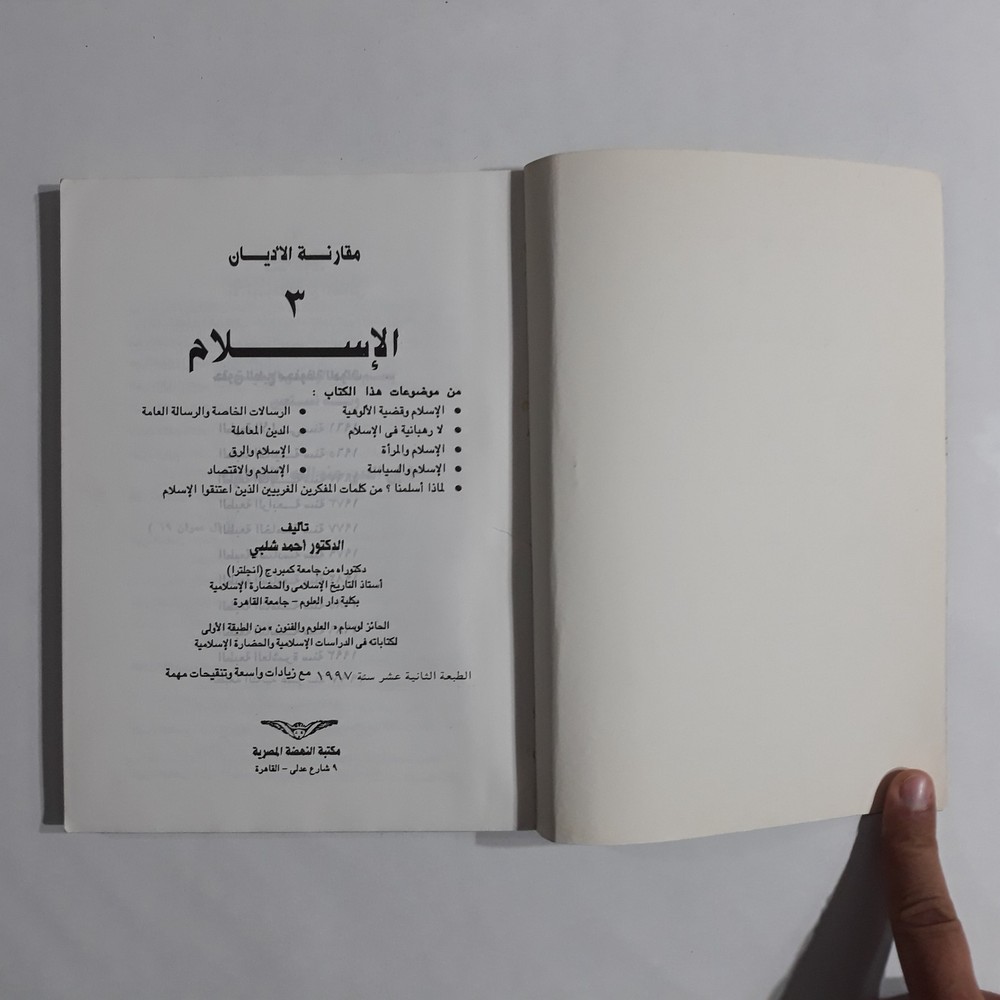 مقارنة الأديان
٣
الإسلام
من موضوعات هذا الكتاب :
• الإسلام وقضية الألوهية • الرسالات الخاصة والرسالة العامة
• لا رهبانية فى الإسلام • الدين المعاملة
• الإسلام والمرأة • الإسلام والرق
• الإسلام والسياسة • الإسلام والاقتصاد
• لماذا أسلمنا ؟ من كلمات المفكرين الغربيين الذين اعتنقوا الإسلام
تأليف
الدكتور أحمد شلبي
دكتوراه من جامعة كمبردج (انجلترا)
أستاذ التاريخ الإسلامى والحضارة الإسلامية
بكلية دار العلوم – جامعة القاهرة
الحائز لوسام « العلوم والفنون » من الطبقة الأولى
لكتاباته فى الدراسات الإسلامية والحضارة الإسلامية
الطبعة الثانية عشر سنة ١٩٩٧ مع زيادات واسعة وتنقيحات مهمة
مكتبة النهضة المصرية
٩ شارع عدلى – القاهرة